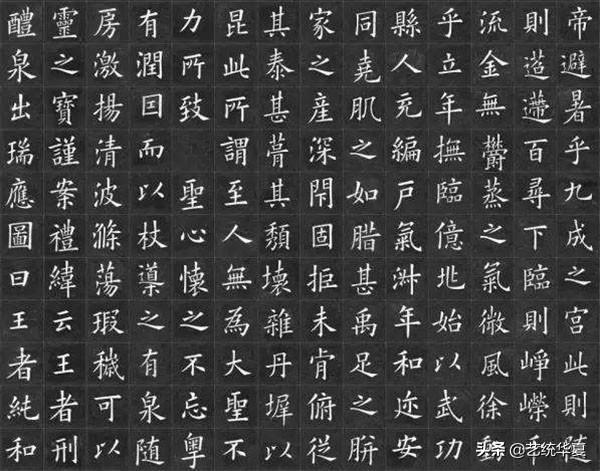 帝避暑乎九成之宮此則随
則迢遰百尋下臨則崢嶸
流金無欝蒸之氣微風徐
乎立年撫臨億兆始以武功
縣人充編戶氣淋年和迩安
同堯肌之如腊甚禹足之胼
家之産深閇固拒未肯俯従
其泰甚葺其頹壞雜丹墀以
昆此所謂至人無為大聖不
力所致 聖心懷之不忘粤
有潤囙而以杖導之有泉随
房激揚清波滌蕩瑕穢可以
靈之寶謹案禮緯云王者刑
醴泉出瑞應圖曰王者純和
头条 @艺统华夏